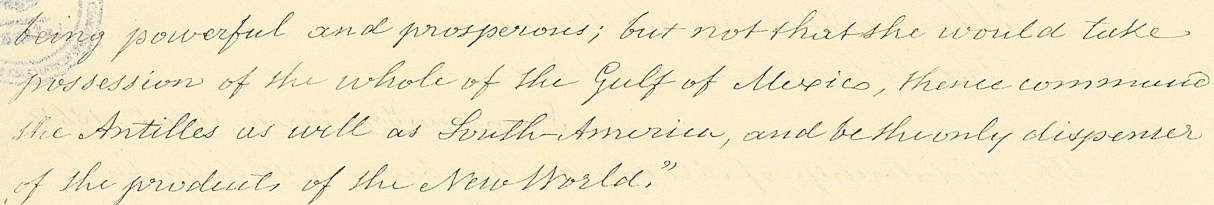 being powerful and prosperous; but not that she would take
possession of the whole of the Gulf of Mexico, thence command
the Antilles as well as South-America, and be the only dispenser
of the products of the New World."